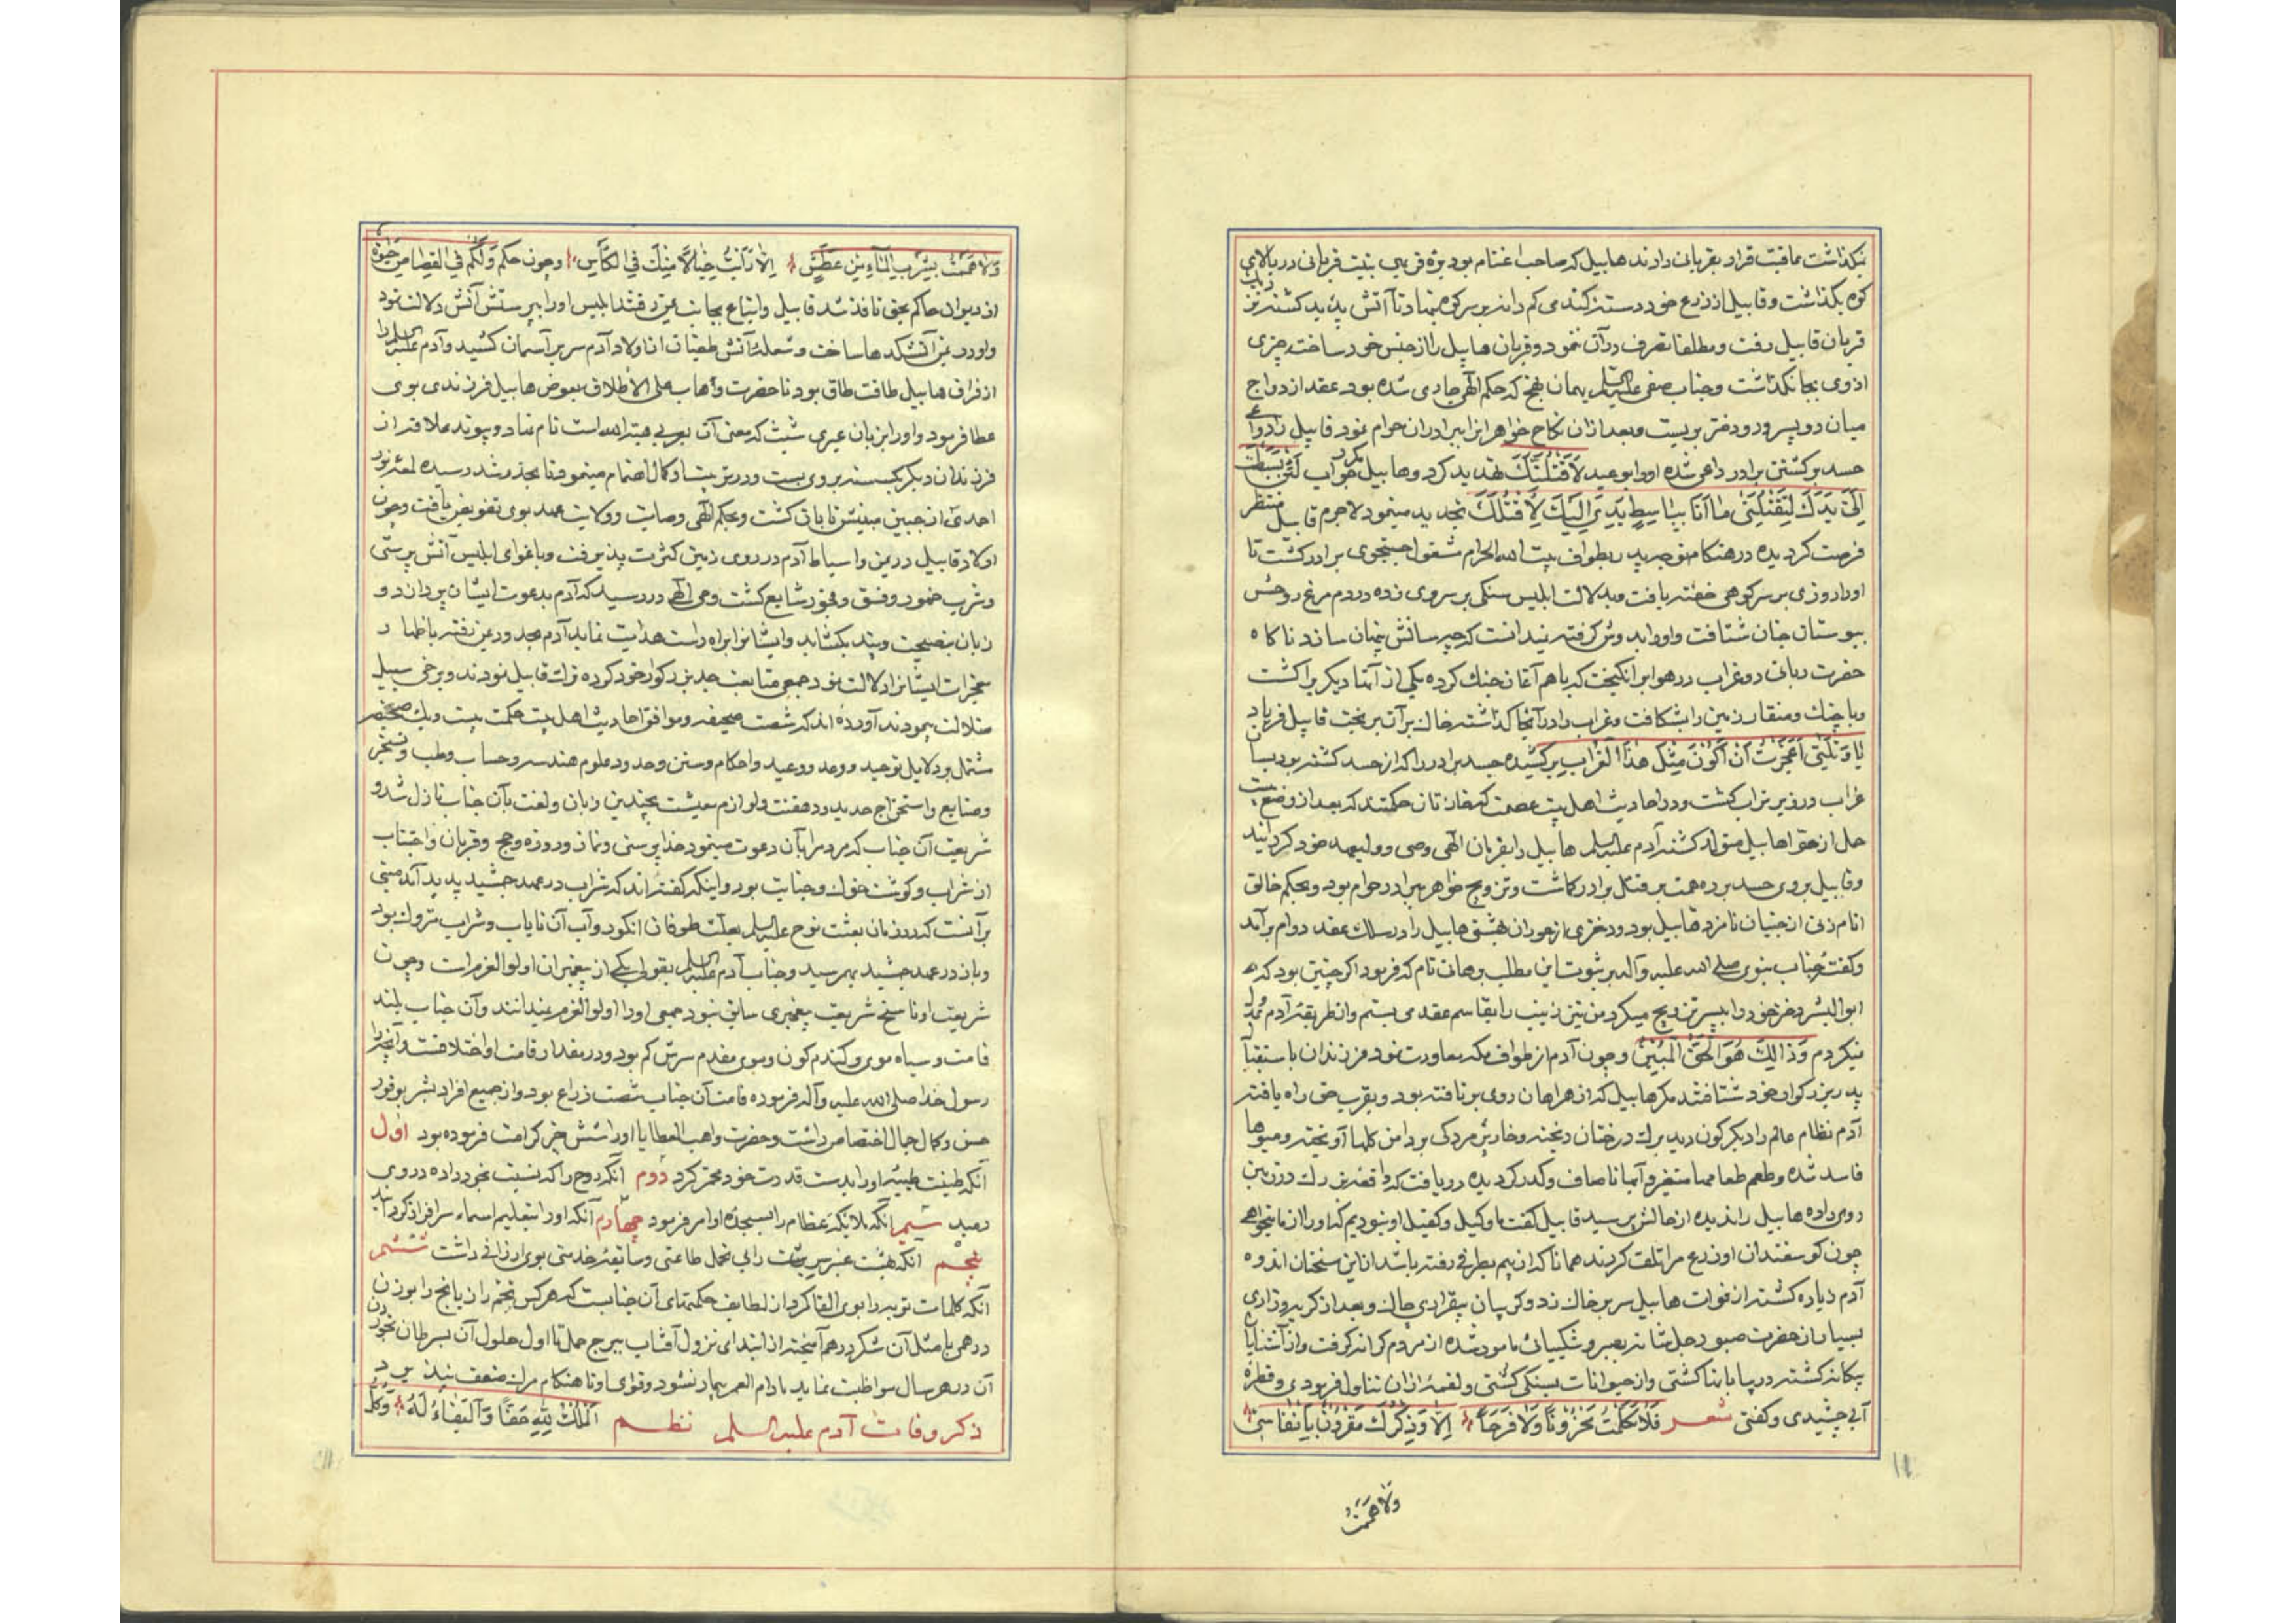 نگذاشت عاقبت قرار بقربانی دادند هابیل که صاحب اغنام بود بره فربهی بنیت قربانی در بالای
کوه بگذاشت و قابیل از زرع خود دسته گندمی کم دانه بر سر کوه نهاد تا آتش پدید گشته نزد
قربان قابیل رفت و مطلقا تصرف در آن ننمود و قربان هابیل را از جنس خود ساخته چیزی
از وی بجا نگذاشت و جناب صفی علیه السلم بهمان نهج که حکم الهی جاری شده بود عقد ازدواج
میان دو پسر و دو دختر بربست و بعد از آن نکاح خواهرانرا ببرادران حرام نمود قابیل
حسد بر کشتن برادر داعی شده او را بوعید لَاَقتُلَنَّكَ تهدید کرد و هابیل جواب لَئِن بَسَطتَ
اِلَیَّ یَدَكَ لِتَقتُلَنی ما اَنَا بِباسِطٍ یَدِیَ اِلَیكَ لِاَقتُلَكَ تجدید مینمود لاجرم قابیل منتظر
فرصت گردیده در هنگام توجه پدر بطواف بیت الله الحرام مشغول جستجوی برادر گشت تا
او را روزی بر سر کوهی خفته یافت و بدلالت ابلیس سنگی بر سر وی زده در دم مرغ روحش
ببوستان جنان شتافت و او را بدوش گرفته نیدانست که چه سانش پنهان سازد ناگاه
حضرت ربانی دو غراب در هوا برانگیخت که با هم آغاز جنك کرده یکی از آنها دیگریرا کشت
و با چنك و منقار زمین را بشکافت و غراب را در آنجا گذاشته خاك بر آن بریخت قابیل فریاد
یا وَیلَتی اَعَجَزتُ اَن اَکونَ مِثلَ هذَا الغُرابِ برکشیده جسد برادر را که از حسد کشته بود بسان
غراب در زیر تراب کشت و در احادیث اهل بیت عصمت که مخازن حکمتند که بعد از وضع
حمل از حوا هابیل متولد گشته آدم علیه السلم هابیل را بفرمان الهی وصی و ولیعهد خود گردانید
و قابیل بر وی حسد برده همت بر قتل برادر گماشت و تزویج خواهر ببرادر حرام بود و بحکم خالق
انام زنی از جنیان نامزد قابیل بود و دختری از حوران بهشتی هابیل را در سلك عقد دوام برآمد
و گفت جناب نبوی صلی الله علیه و آله بر ثبوت این مطلب برهان تام که فرمود اگر چنین بود که
ابوالبشر دختر خود را بپسر تزویج میکرد من نیز زینب را بقاسم عقد می بستم و از طریقه آدم عدول
نمیکردم وَ ذالِكَ هُوَ الحَقُّ المُبینُ و چون آدم از طواف مکه معاودت نمود فرزندان باستقبال
پدر بزرگوار خود شتافتند مگر هابیل که از همراهان روی برتافته بود و بقرب حق راه یافته
آدم نظام عالم را دیگرگون دید برك درختان ریخته و خار بر دامن گلها آویخته و میوها
فاسد شده و طعم طعامها متغیر و آبها ناصاف و کدر گردیده دریافت که واقعه بزرك در زمین
روی داده هابیل را ندیده از حالش پرسید قابیل گفت ما وکیل و کفیل او نبودیم که او را از ما میخواهی
چون گوسفندان او زرع مرا تلف کردند همانا که از بیم بطرفی رفته باشد از این سخنان اندوه
آدم زیاده گشته از فوات هابیل سر بر خاك زد و گریبان بیقراری چاك و بعد از گریه و زاری
بسیار از حضرت صبور جل شانه بصبر و شکیبائی مامور شده از مردم کرانه گرفت و از آشنایان
بیگانه گشته در بیابانها گشتی و از حیوانات بسنگی کشتی و لقمه از آن تناول فرمودی و قطره
آبی چشیدی و گفتی شعر فَلا تَکَلَّمتُ مَحزوناً وَلا فَرَحاً اِلّا وَ ذِکرُكَ مَقرونٌ بِاَنفاسی
ولا هممت
۱۱
وَلا هَمَمتُ بِشُربِ الماءِ مِن عَطَشٍ اِلّا رَاَیتُ خَیالاً مِنكَ فِی الکَأسِ و چون حکم وَلَکُم فِی القِصاصِ حَیوةٌ
از دیوان حاکم بحق نافذ شد قابیل و اتباع بجانب یمن رفتند ابلیس او را بپرستش آتش دلالت نمود
و او در یمن آتشکدها ساخت و شعله آتش طغیان از اولاد آدم سر بر آسمان کشید و آدم علیه السلم را
از فراق هابیل طاقت طاق بود تا حضرت وهاب علی الاطلاق بعوض هابیل فرزندی بوی
عطا فرمود و او را بزبان عبری شیث که معنی آن بعربی هبة الله است نام نهاد و پیوند علاقه از
فرزندان دیگر گسسته بر وی بست و در تربیت او کمال اهتمام مینمود تا بحد رشد رسیده لمعه نور
احدی از جبین مبینش تابان گشت و بحکم الهی وصایت و ولایت عهد بوی تفویض یافت و چون
اولاد قابیل در یمن و اسباط آدم در روی زمین کثرت پذیرفت و باغوای ابلیس آتش پرستی
و شرب خمور و فسق و فجور شایع گشت وحی الهی در رسید که آدم بدعوت ایشان پردازد و
زبان بنصیحت و پند بگشاید و ایشانرا براه راست هدایت نماید آدم مجددا در یمن رفته باظهار
معجزات ایشانرا دلالت نمود جمعی متابعت جد بزرگوار خود کرده ترك قابیل نمودند و برخی سبیل
ضلالت پیمودند آورده اند که شصت صحیفه و موافق احادیث اهل بیت حکمت بیست و یك صحیفه
مشتمل بر دلایل توحید و وعد و وعید و احکام و سنن و حدود و علوم هندسه و حساب و طب و تسخیر
و صنایع و استخراج حدید و دهقنت و لوازم معیشت بچندین زبان و لغت بآن جناب نازل شد و
شریعت آن جناب که مردم را بآن دعوت مینمود خدا پرستی و نماز و روزه و حج و قربان و اجتناب
از شراب و گوشت خوك و جنایت بود و اینکه گفته اند که شراب در عهد جمشید پدید آمد مبنی
بر آنست که در زمان بعثت نوح علیه السلم بعلت طوفان انگور و آب آن نایاب و شراب متروك بود
و باز در عهد جمشید بهم رسید و جناب آدم علیه السلم بقولی یکی از پیغمبران اولوالعزم است و چون
شریعت او ناسخ شریعت پیغمبری سابق نبود جمعی او را اولوالعزم نمیدانند و آن جناب بلند
قامت و سیاه موی و گندم گون و موی مقدم سرش کم بود و در مقدار قامت او اختلافست و آنچه را
رسول خدا صلی الله علیه و آله فرموده قامت آن جناب شصت ذراع بود و از جمیع افراد بشر بوفور
حسن و کمال جمال اختصاص داشت و حضرت واهب العطایا او را شش چیز کرامت فرموده بود اول
آنکه طینت طیبه او را بدست قدرت خود مخمر کرد دوم آنکه روح را که نسبت بخود داده در وی
دمید سیم آنکه ملائکه عظام را بسجده او امر فرمود چهارم آنکه او را بتعلیم اسماء سرافراز گردانید
پنجم آنکه بهشت عنبر سرشت را بی تحمل طاعتی و سابقه خدمتی بوی ارزانی داشت ششم
آنکه کلمات توبه را بوی القا کرد از لطایف حکمتهای آن جنابست که هر کس تخم رازیانج را بوزن
درهمی با مثل آن شکر درهم آمیخته از ابتدای نزول آفتاب ببرج حمل تا اول حلول آن بسرطان بخورد
آن در هر سال مواظبت نماید مادام العمر بیمار نشود و قوای او تا هنگام مرك ضعف نپذیرد
ذکر وفات آدم علیه السلم نظم اَلمُلكُ لِلّهِ حَقّاً وَ البَقاءُ لَهُ وَکُلُّ